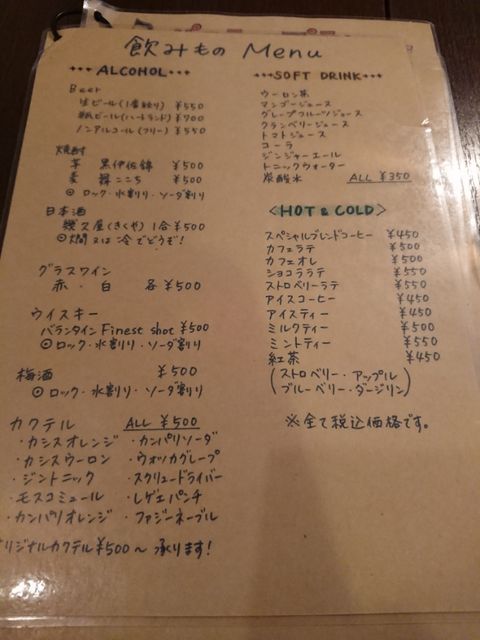 飲みもの Menu
ALCOHOL
Beer
生ビール(1番搾り) ¥550
瓶ビール(ハートランド) ¥700
ノンアルコール(フリー) ¥550
焼酎
芋 黒伊佐錦 ¥500
麦 舞ここち ¥500
◎ロック・水割り・ソーダ割り
日本酒
幾久屋(きくや) 1合¥500
◎燗又は冷でどうぞ!
グラスワイン
赤・白 各¥500
ウイスキー
バランタイン Finest shot ¥500
◎ロック・水割り・ソーダ割り
梅酒 ¥500
◎ロック・水割り・ソーダ割り
カクテル ALL ¥500
・カシスオレンジ ・カンパリソーダ
・カシスウーロン ・ウォッカグレープ
・ジントニック ・スクリュードライバー
・モスコミュール ・レゲエパンチ
・カンパリオレンジ ・ファジーネーブル
オリジナルカクテル¥500〜承ります!
SOFT DRINK
ウーロン茶
マンゴージュース
グレープフルーツジュース
クランベリージュース
トマトジュース
コーラ
ジンジャーエール
トニックウォーター
炭酸水 ALL ¥350
<HOT & COLD>
スペシャルブレンドコーヒー ¥450
カフェラテ ¥500
カフェオレ ¥500
ショコララテ ¥550
ストロベリーラテ ¥550
アイスコーヒー ¥450
アイスティー ¥450
ミルクティー ¥500
ミントティー ¥550
紅茶 ¥450
(ストロベリー・アップル
ブルーベリー・ダージリン)
※全て税込価格です。